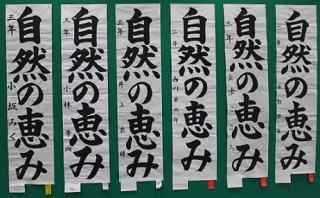 自然の恵み
三年
小坂みく
自然の恵み
三年
小林
自然の恵み
三年
井上
自然の恵み
二年
西川
自然の恵み
三年
自然の恵み